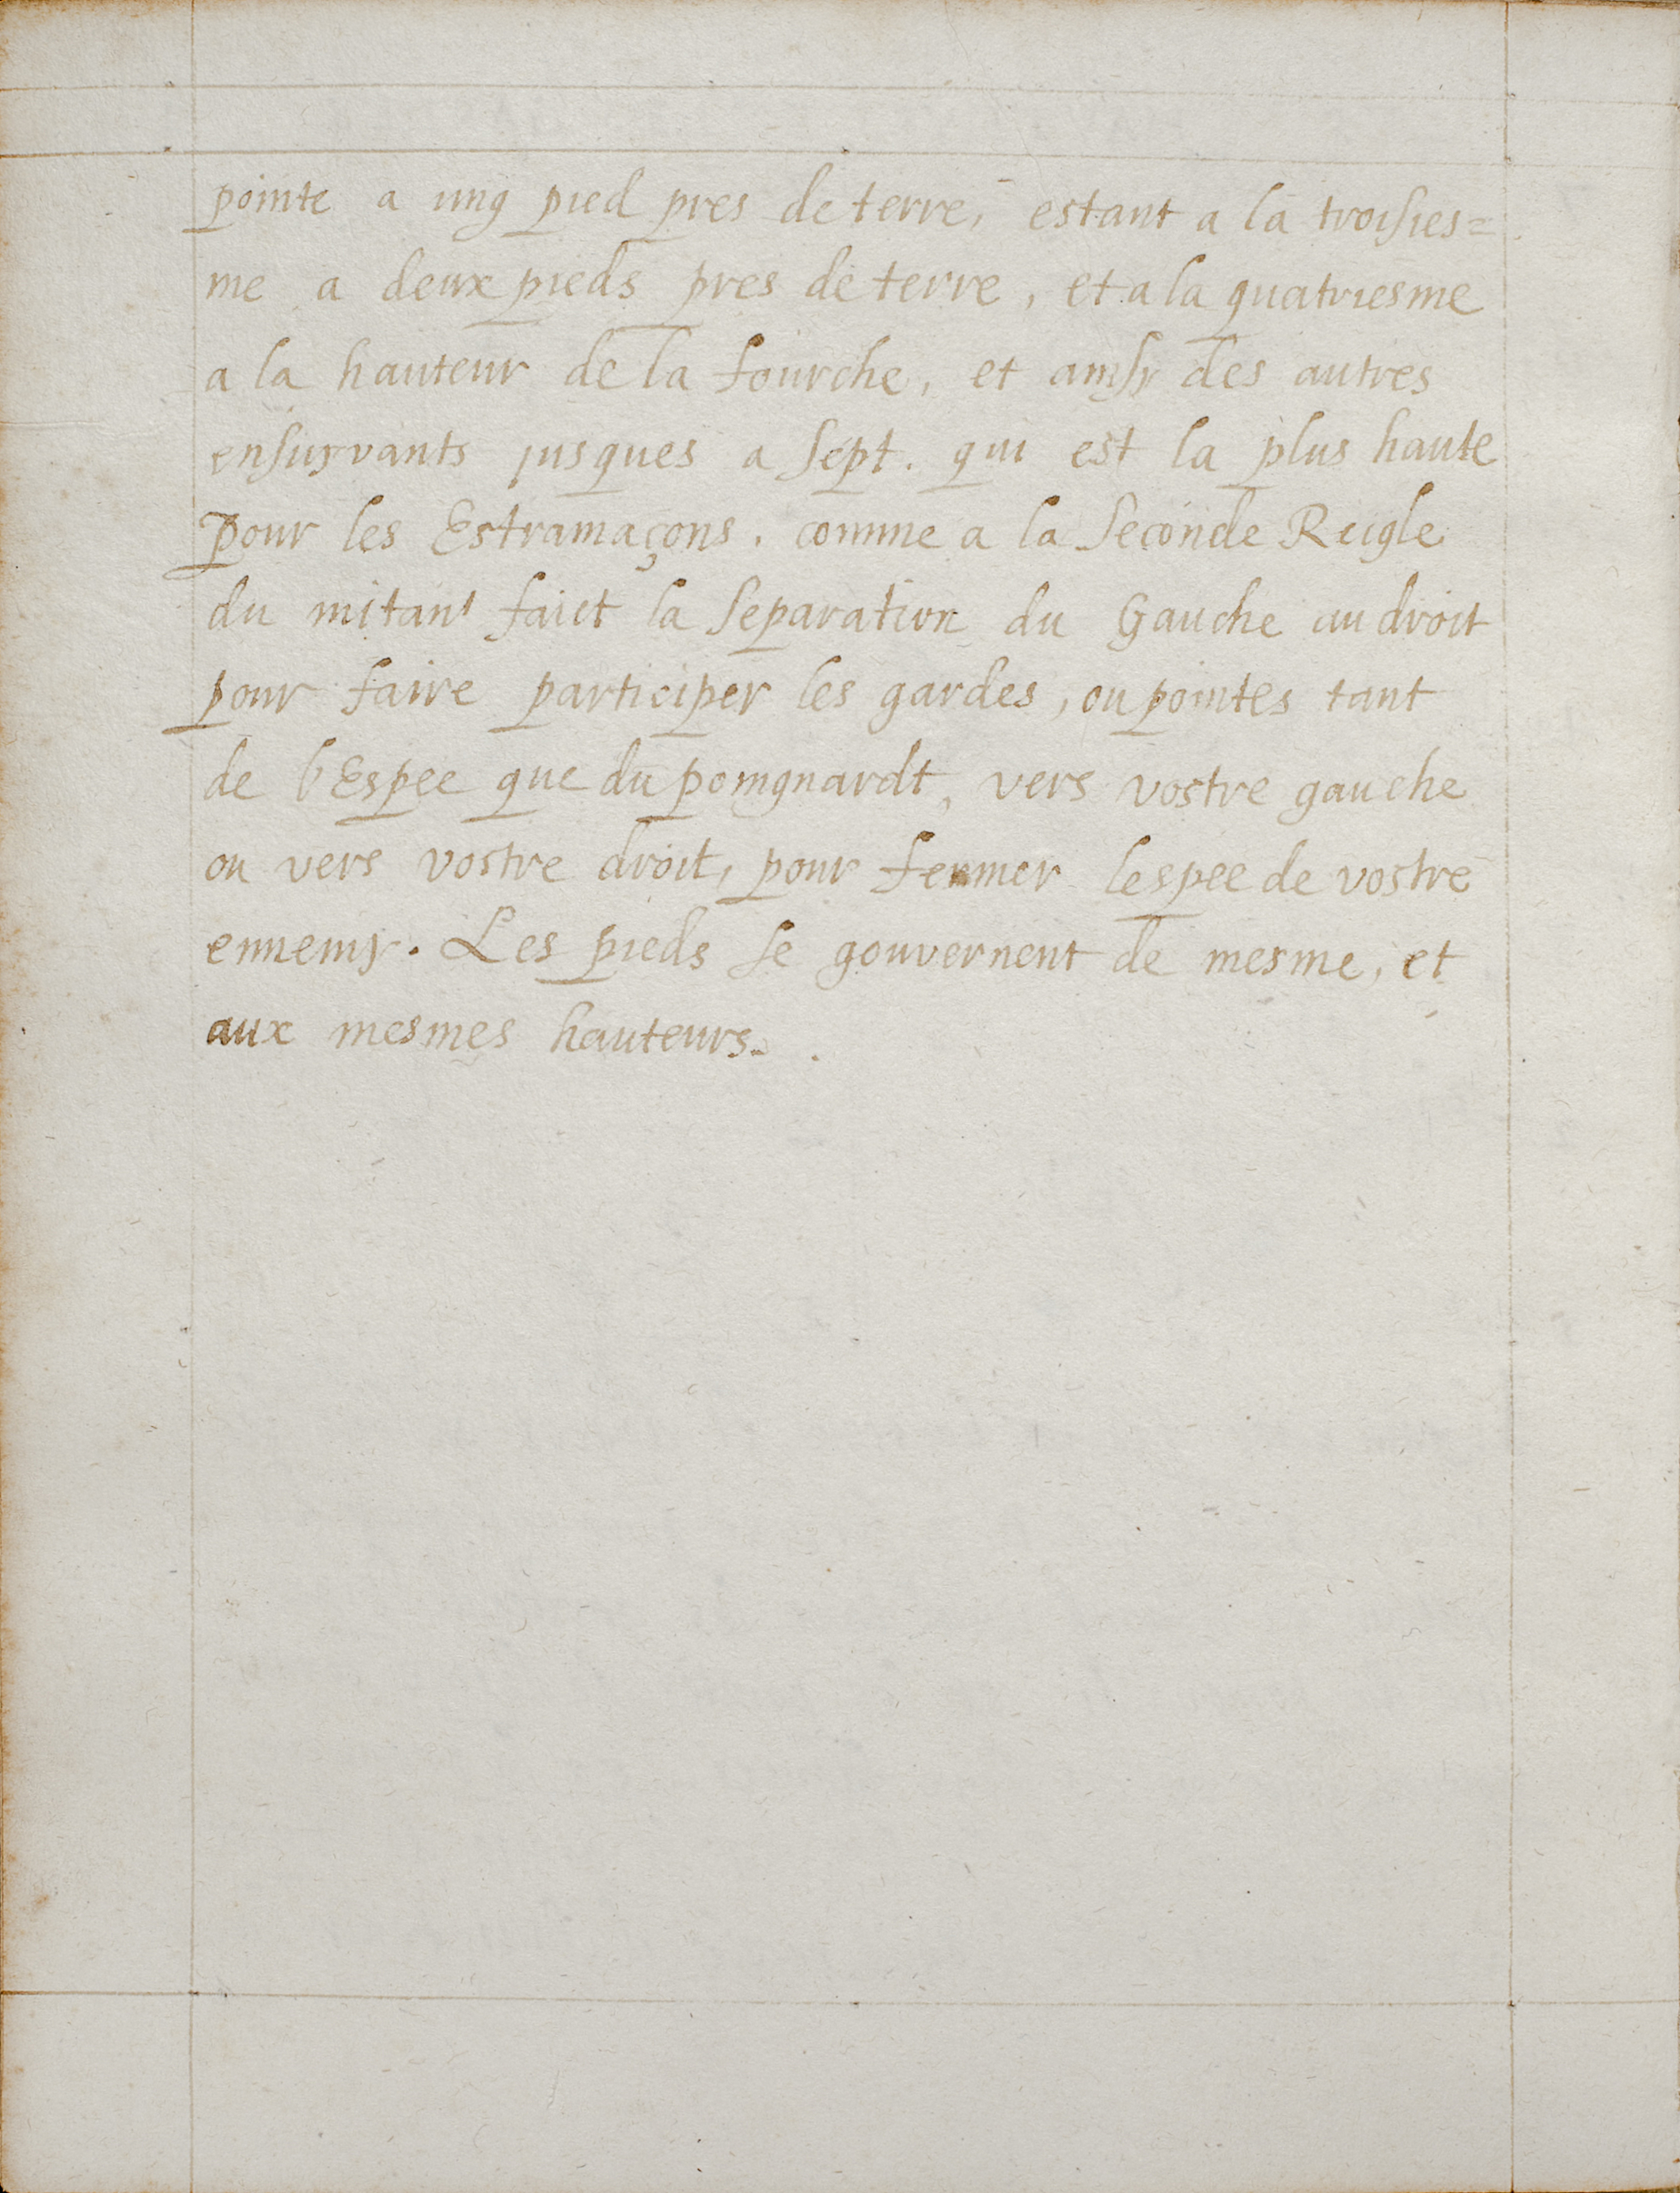 pointe a ung pied pres de terre, estant a la troisies=
me a deux pieds pres de terre, et a la quatriesme
a la hauteur de la fourche, et ainsy des autres
ensuyvants jusques a sept. qui est la plus haute
pour les Estramaçons. comme a la seconde Reigle
du mitant faict la separation du Gauche au droit
pour faire participer les gardes, ou pointes tant
de l'Espee que du poingnardt, vers vostre gauche
ou vers vostre droit, pour fermer lespee de vostre
ennemy. Les pieds se gouvernent de mesme, et
aux mesmes hauteurs.